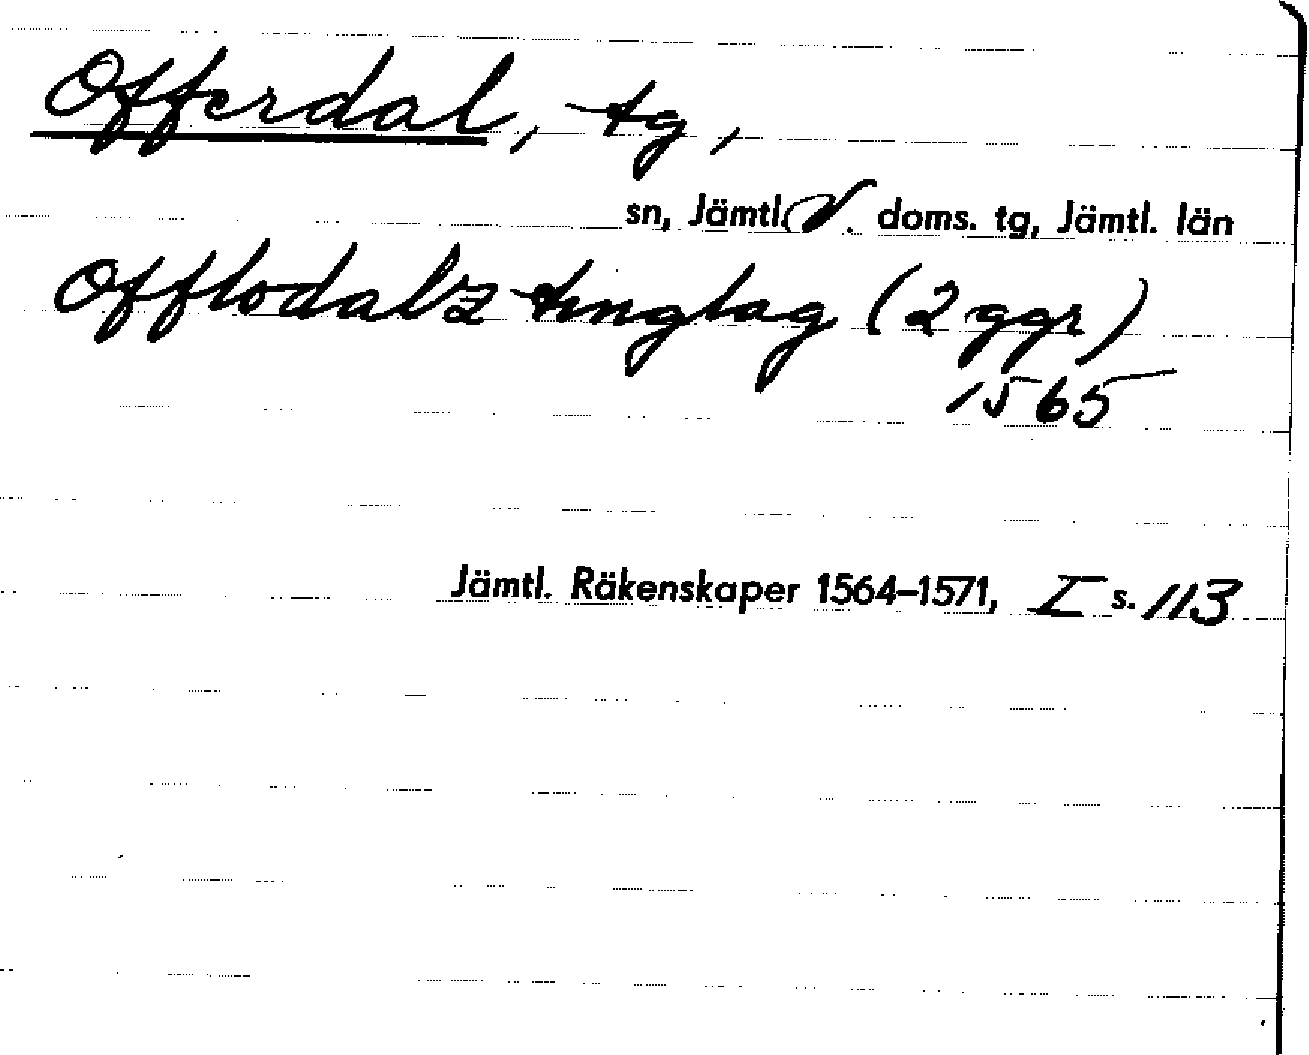 Offerdal, tg,
sn, Jämtl. V. doms. tg, Jämtl. län
Offlodalz tinglag (2 ggr)
1565
Jämtl. Räkenskaper 1564–1571, I s. 113